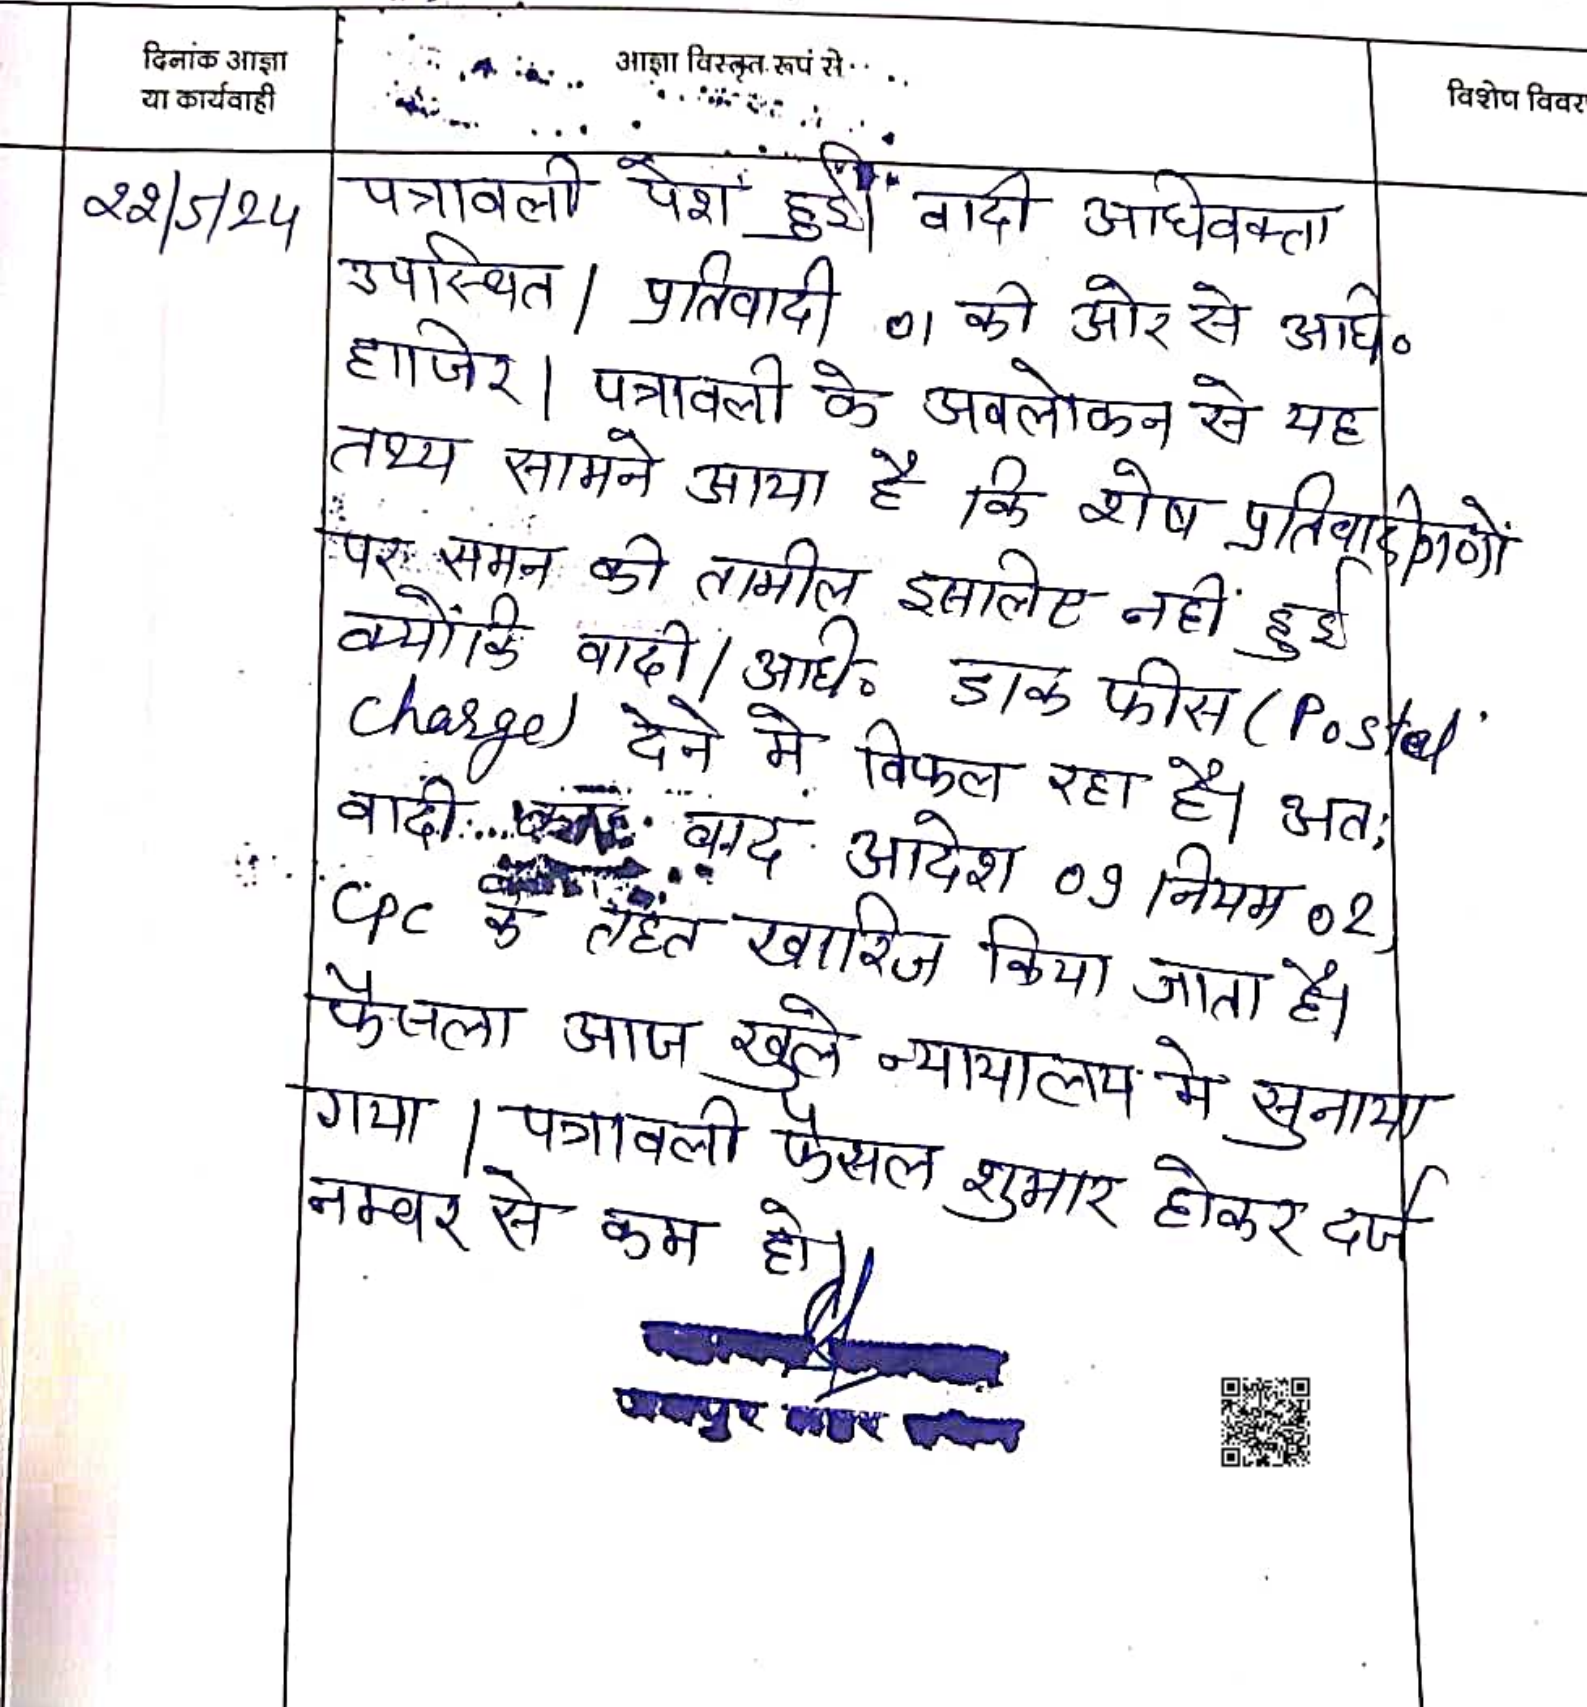 दिनांक आज्ञा
या कार्यवाही
आज्ञा विस्तृत रूप से
विशेष विवर
22/5/24
पत्रावली पेश हुई। वादी अधिवक्ता
उपस्थित। प्रतिवादी 01 की ओर से अधि॰
हाजिर। पत्रावली के अवलोकन से यह
तथ्य सामने आया है कि शेष प्रतिवादीगणों
पर समन की तामील इसलिए नहीं हुई
क्योंकि वादी/अधि॰ डाक फीस (Postal
charge) देने मे विफल रहा है। अतः
वादी वाद आदेश 09 नियम 02
CPC के तहत खारिज किया जाता है।
फैसला आज खुले न्यायालय मे सुनाया
गया। पत्रावली फैसल शुमार होकर दर्ज
नम्बर से कम हो।